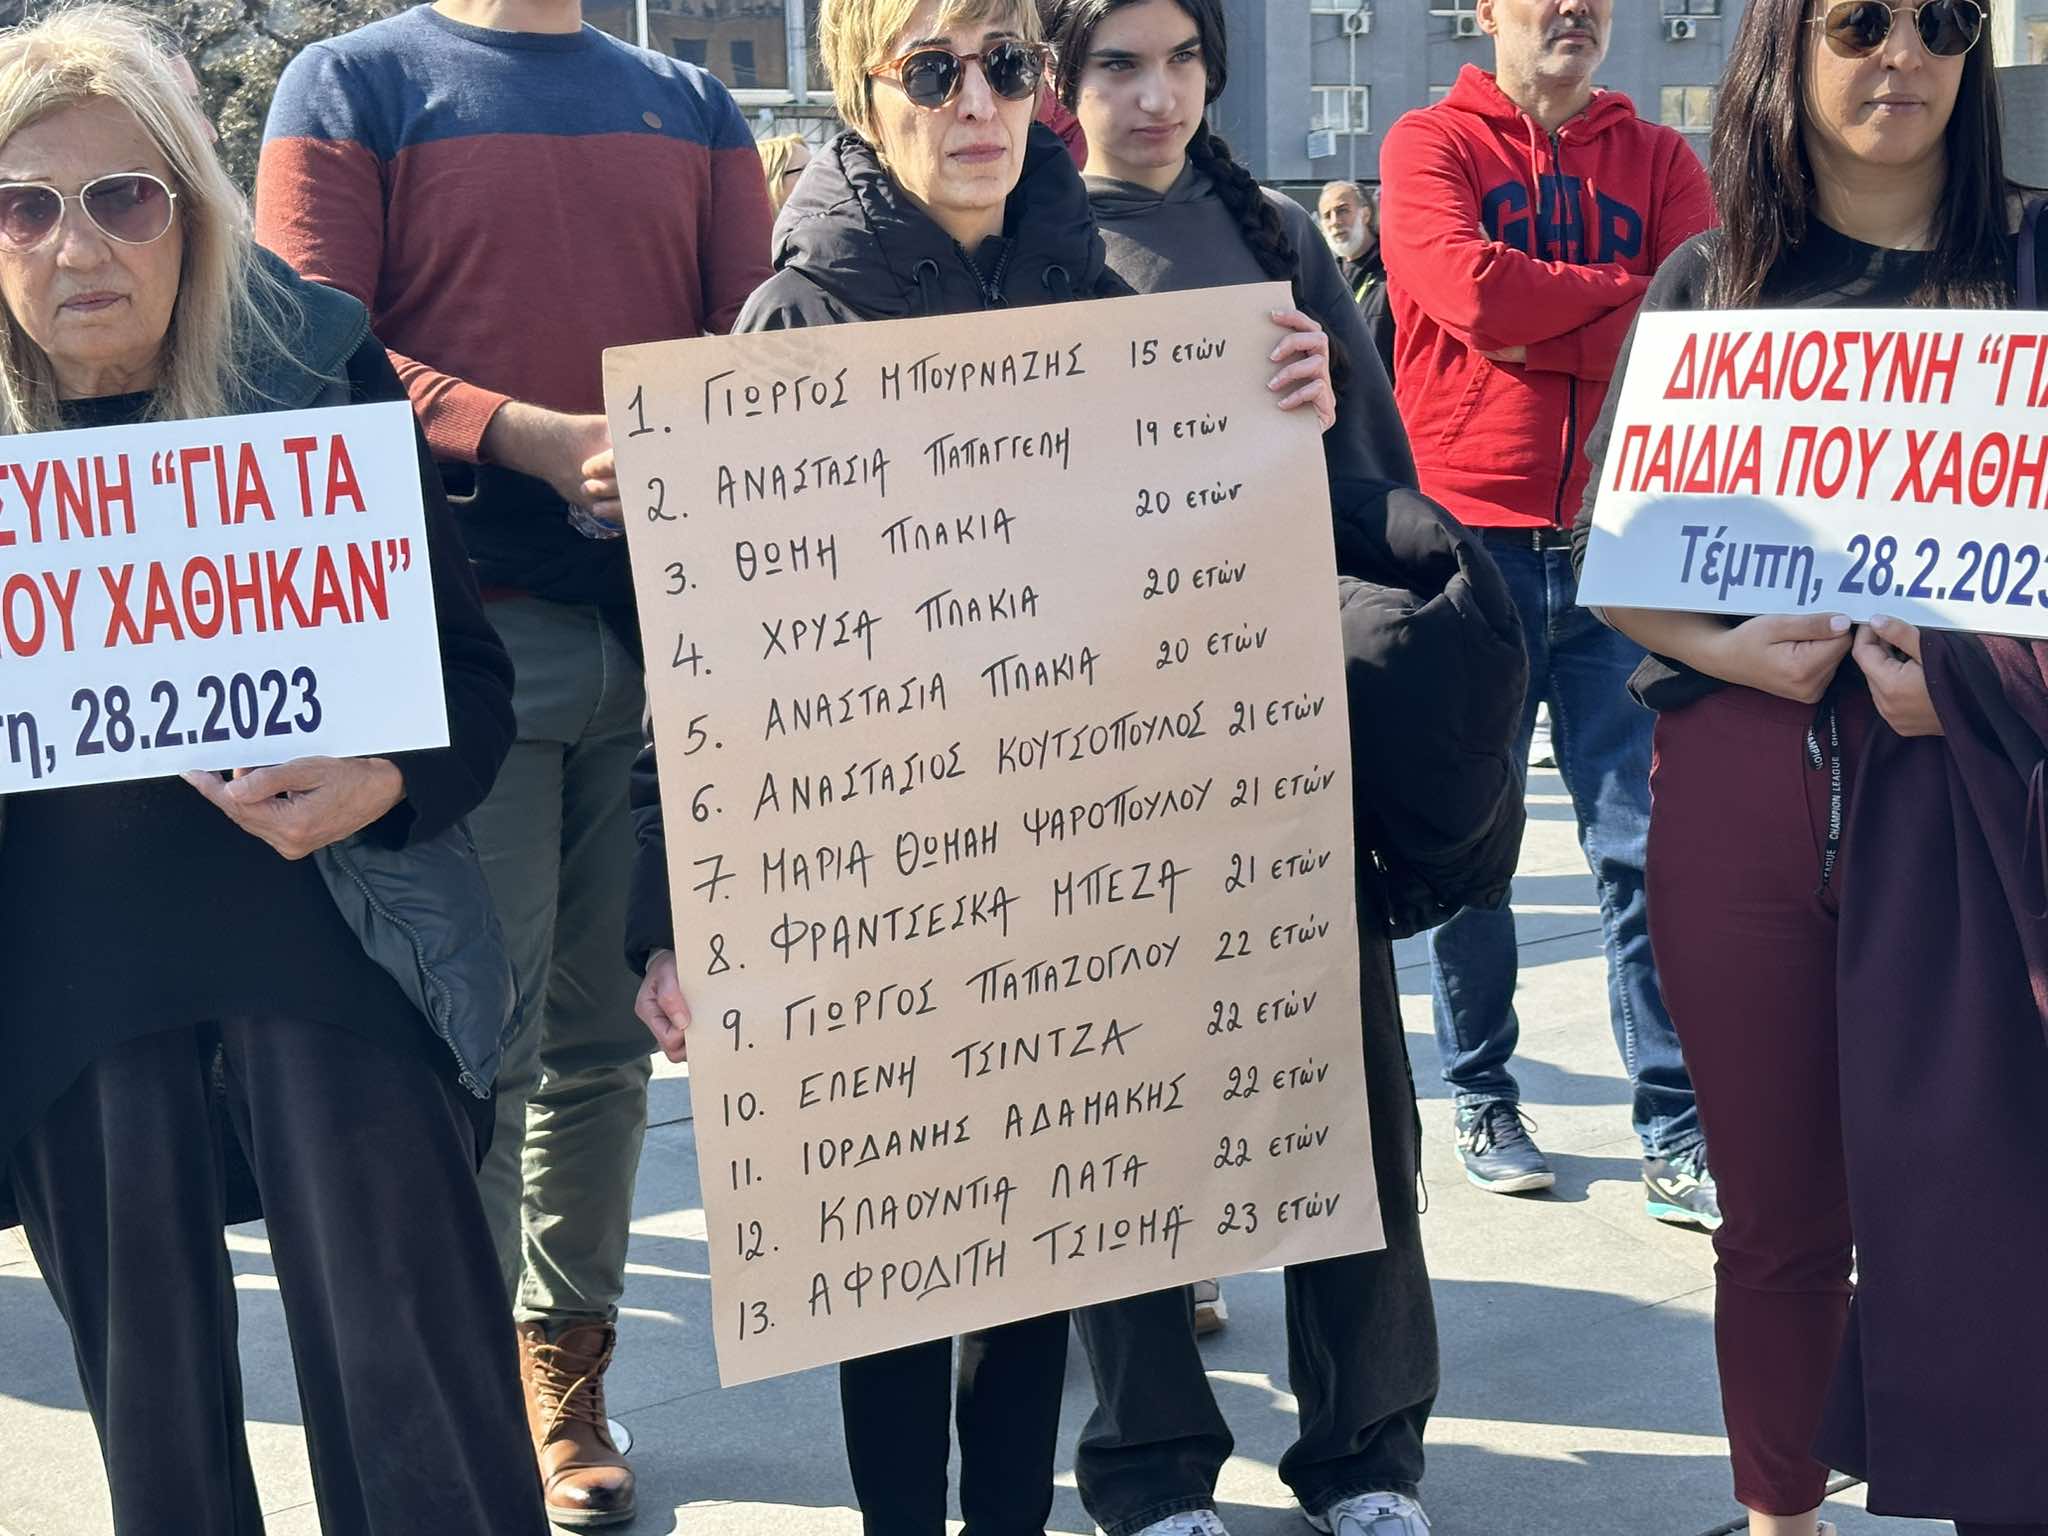 ΣΥΝΗ “ΓΙΑ ΤΑ
ΠΟΥ ΧΑΘΗΚΑΝ”
πη, 28.2.2023
1. ΓΙΩΡΓΟΣ ΜΠΟΥΡΝΑΖΗΣ 15 ετών
2. ΑΝΑΣΤΑΣΙΑ ΠΑΠΑΓΓΕΛΗ 19 ετών
3. ΘΩΜΗ ΠΛΑΚΙΑ 20 ετών
4. ΧΡΥΣΑ ΠΛΑΚΙΑ 20 ετών
5. ΑΝΑΣΤΑΣΙΑ ΠΛΑΚΙΑ 20 ετών
6. ΑΝΑΣΤΑΣΙΟΣ ΚΟΥΤΣΟΠΟΥΛΟΣ 21 ετών
7. ΜΑΡΙΑ ΘΩΜΑΗ ΨΑΡΟΠΟΥΛΟΥ 21 ετών
8. ΦΡΑΝΤΣΕΣΚΑ ΜΠΕΖΑ 21 ετών
9. ΓΙΩΡΓΟΣ ΠΑΠΑΖΟΓΛΟΥ 22 ετών
10. ΕΛΕΝΗ ΤΣΙΝΤΖΑ 22 ετών
11. ΙΟΡΔΑΝΗΣ ΑΔΑΜΑΚΗΣ 22 ετών
12. ΚΛΑΟΥΝΤΙΑ ΛΑΤΑ 22 ετών
13. ΑΦΡΟΔΙΤΗ ΤΣΙΩΜΑ 23 ετών
GAP
ΔΙΚΑΙΟΣΥΝΗ “ΓΙΑ
ΠΑΙΔΙΑ ΠΟΥ ΧΑΘΗ
Τέμπη, 28.2.2023
CHAMPION LEAGUE